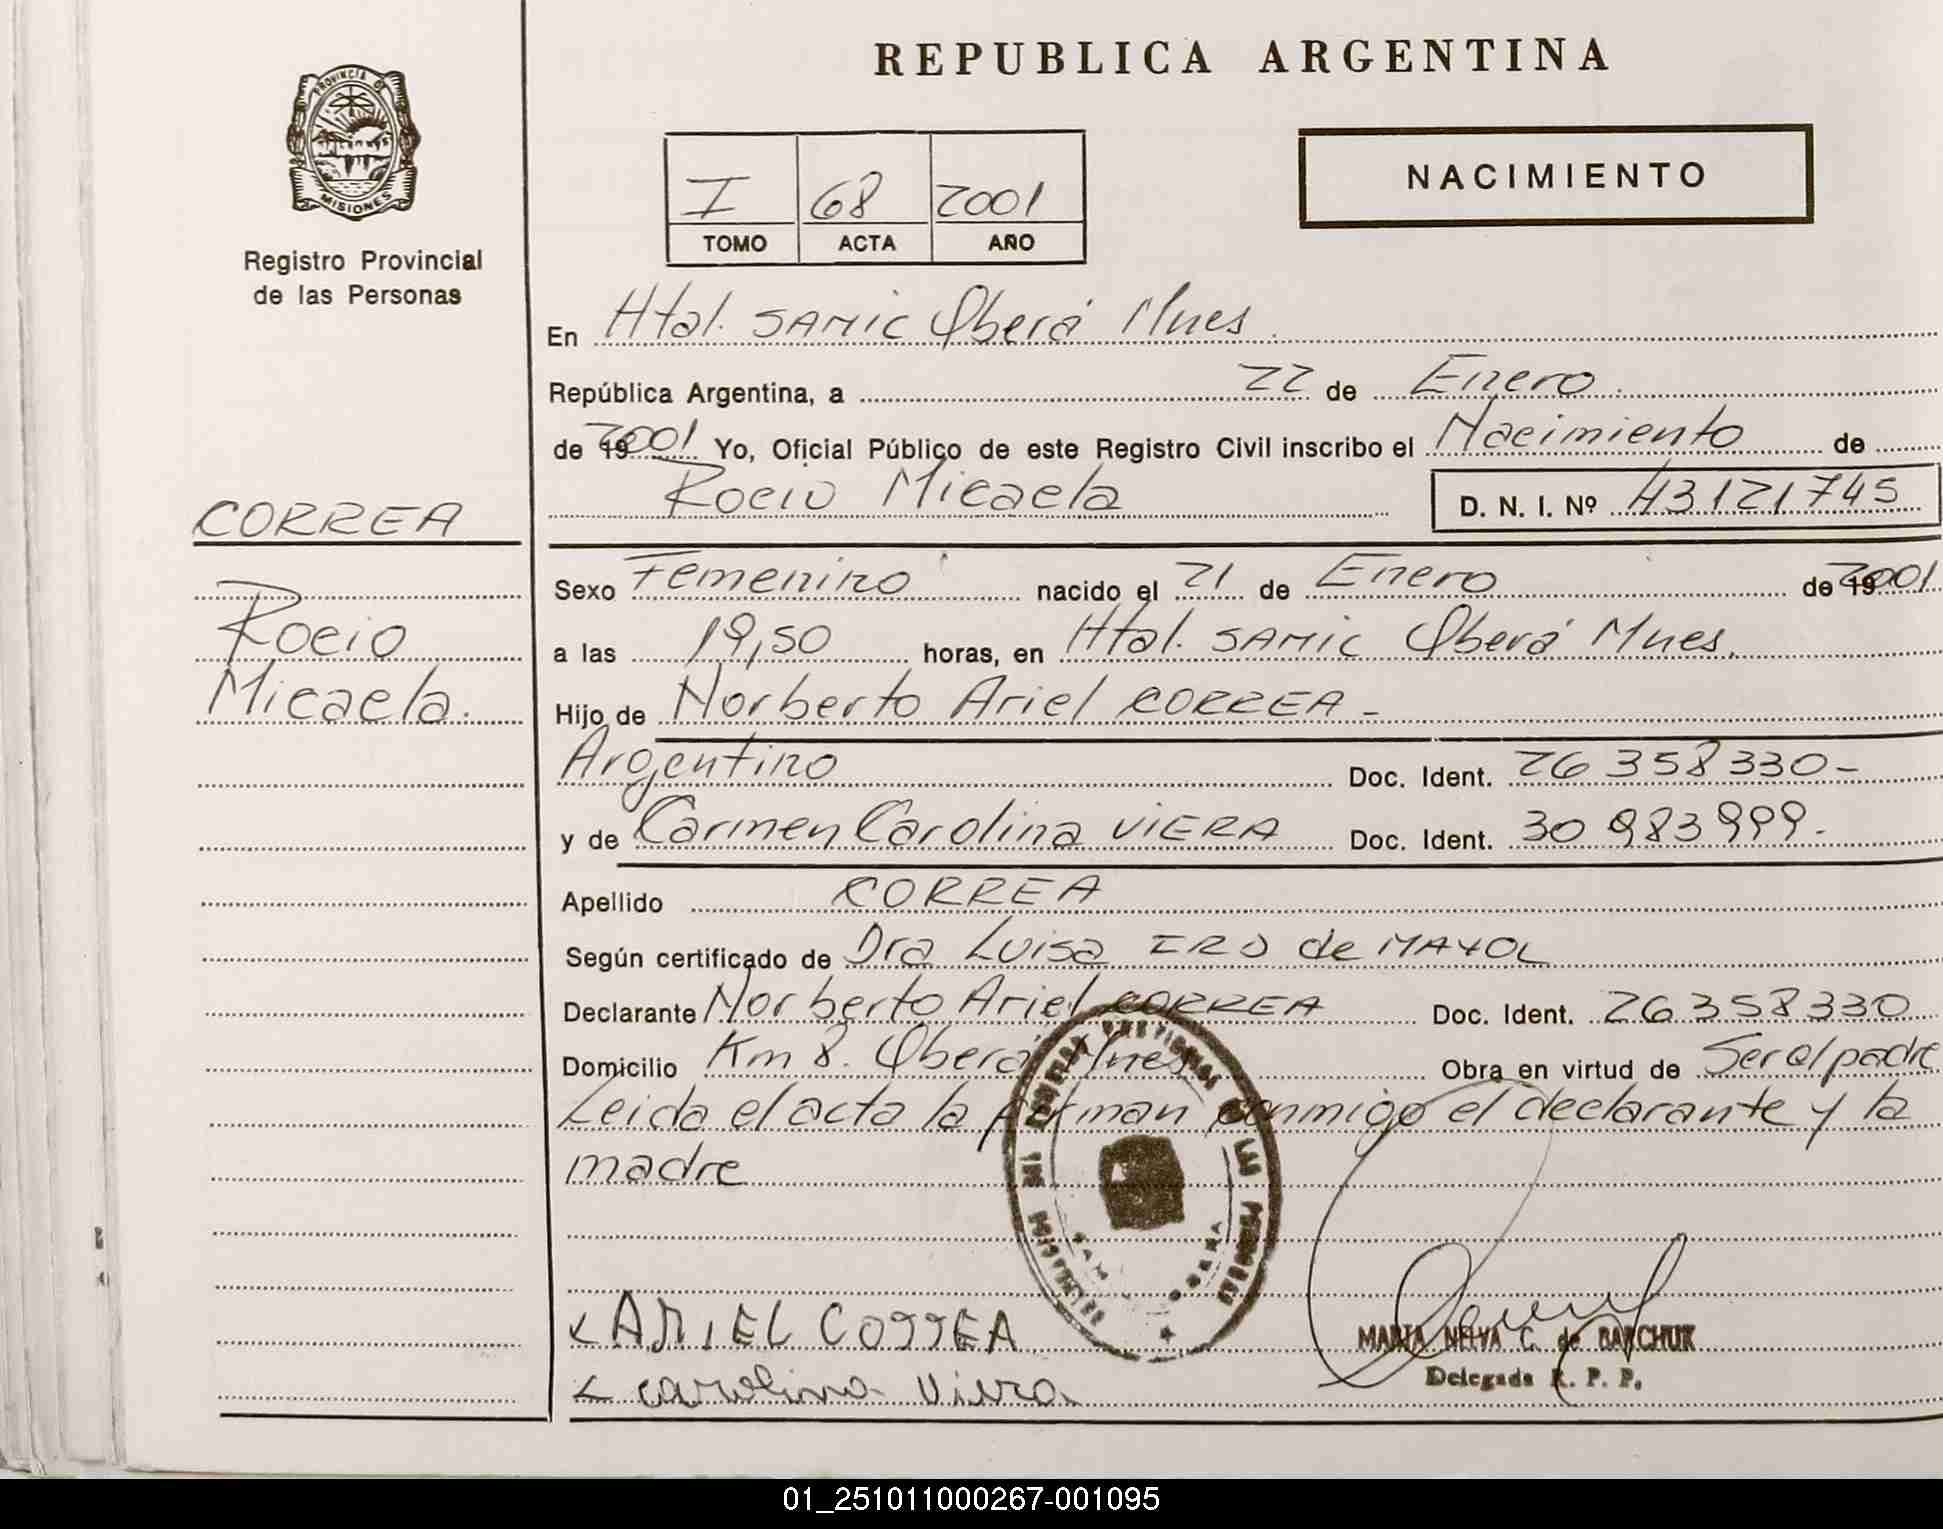 REPUBLICA ARGENTINA
PROVINCIA DE
MISIONES
Registro Provincial
de las Personas
I 68 2001
TOMO ACTA AÑO
NACIMIENTO
En Htal. SAMIC Oberá Mnes.
República Argentina, a 22 de Enero.
de 19 2001 Yo, Oficial Público de este Registro Civil inscribo el Nacimiento de
Rocio Micaela D. N. I. Nº 43121745
CORREA
Rocio
Micaela.
Sexo Femenino nacido el 21 de Enero de 19 2001
a las 19,50 horas, en Htal. SAMIC Oberá Mnes.
Hijo de Norberto Ariel CORREA -
Argentino Doc. Ident. 26 358 330-
y de Carmen Carolina VIERA Doc. Ident. 30 983 999.
Apellido CORREA
Según certificado de Dra Luisa IRO de MAYOL
Declarante Norberto Ariel CORREA Doc. Ident. 26 358 330
Domicilio Km 8. Oberá Mnes Obra en virtud de Ser el padre
Leida el acta la firman conmigo el declarante y la
madre
ARIEL CORREA
carolina Viera
MARIA NELVA C. de BARCHUK
Delegada R. P. P.
01_251011000267-001095